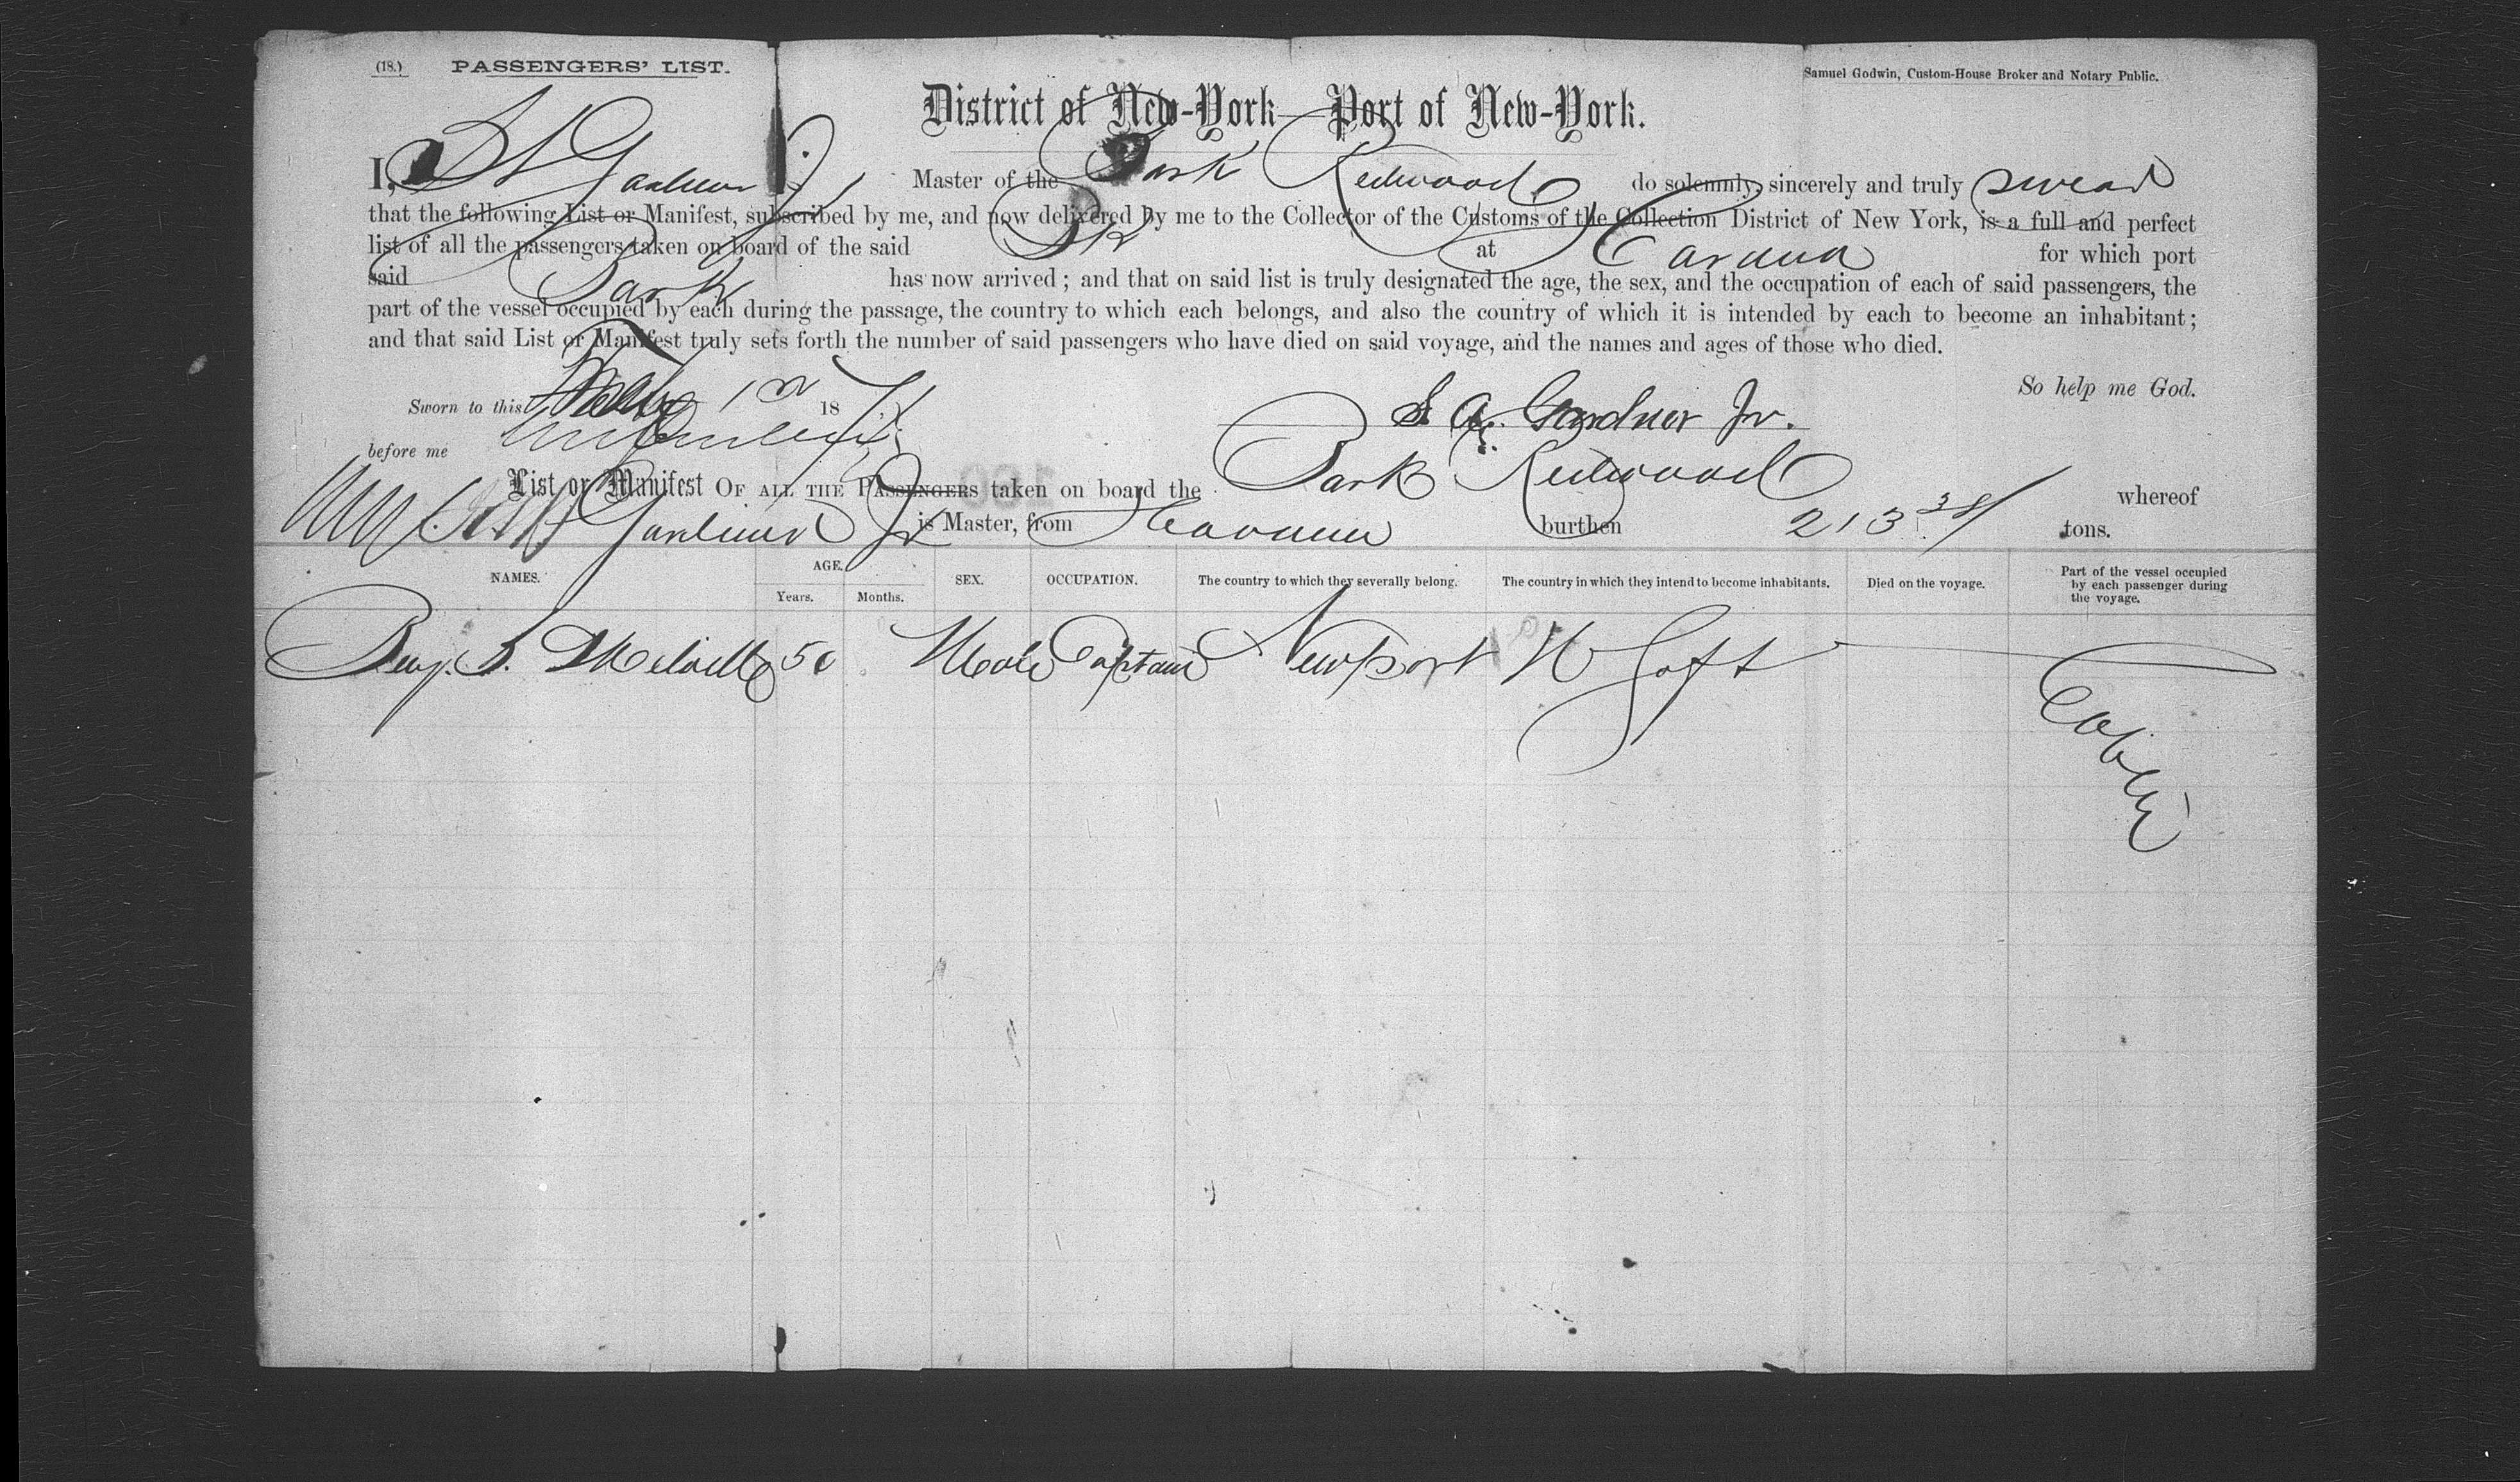 (18.) PASSENGERS' LIST.
Samuel Godwin, Custom-House Broker and Notary Public.
District of New-York—Port of New-York.
I, S A Gardner Jr Master of the Bark Redwood do solemnly, sincerely and truly swear
that the following List or Manifest, subscribed by me, and now delivered by me to the Collector of the Customs of the Collection District of New York, is a full and perfect
list of all the passengers taken on board of the said Bk at Havana for which port
said Bark has now arrived; and that on said list is truly designated the age, the sex, and the occupation of each of said passengers, the
part of the vessel occupied by each during the passage, the country to which each belongs, and also the country of which it is intended by each to become an inhabitant;
and that said List or Manifest truly sets forth the number of said passengers who have died on said voyage, and the names and ages of those who died.
So help me God.
Sworn to this Feby 1 18
S. A. Gardner Jr.
before me
List or Manifest OF ALL THE PASSENGERS taken on board the Bark Redwood whereof
Gardiner Jr is Master, from Havana burthen 213 38/ tons.
NAMES. AGE. Years. Months. SEX. OCCUPATION. The country to which they severally belong. The country in which they intend to become inhabitants. Died on the voyage. Part of the vessel occupied by each passenger during the voyage.
Benj. S. Melville 50 Male Captain Newport Cabin